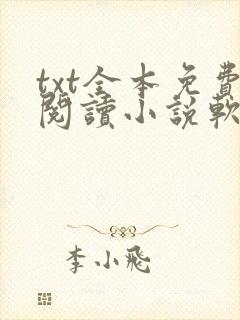 txt全本免費
閱讀小說軟
李小飛